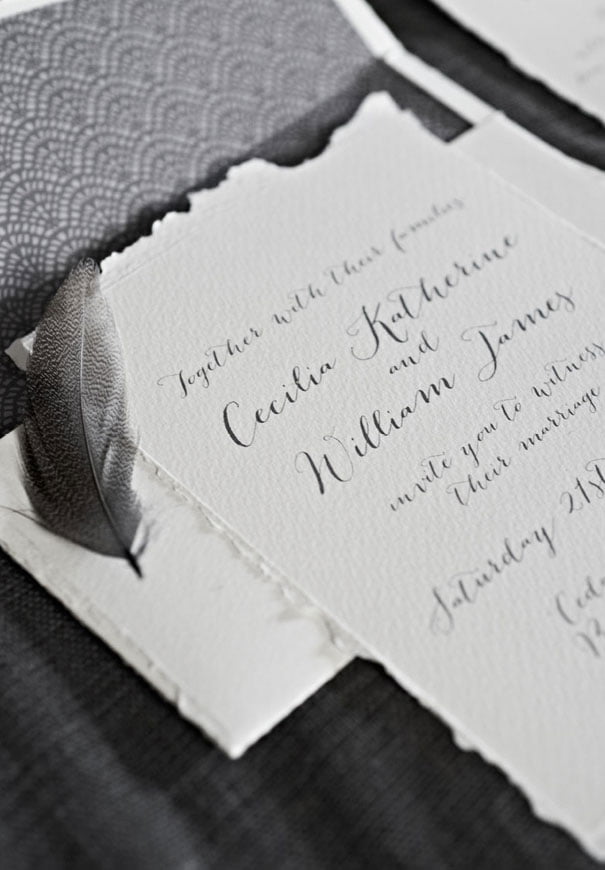 Together with their families
Cecilia Katherine
and
William James
invite you to witness
their marriage
Saturday 21st